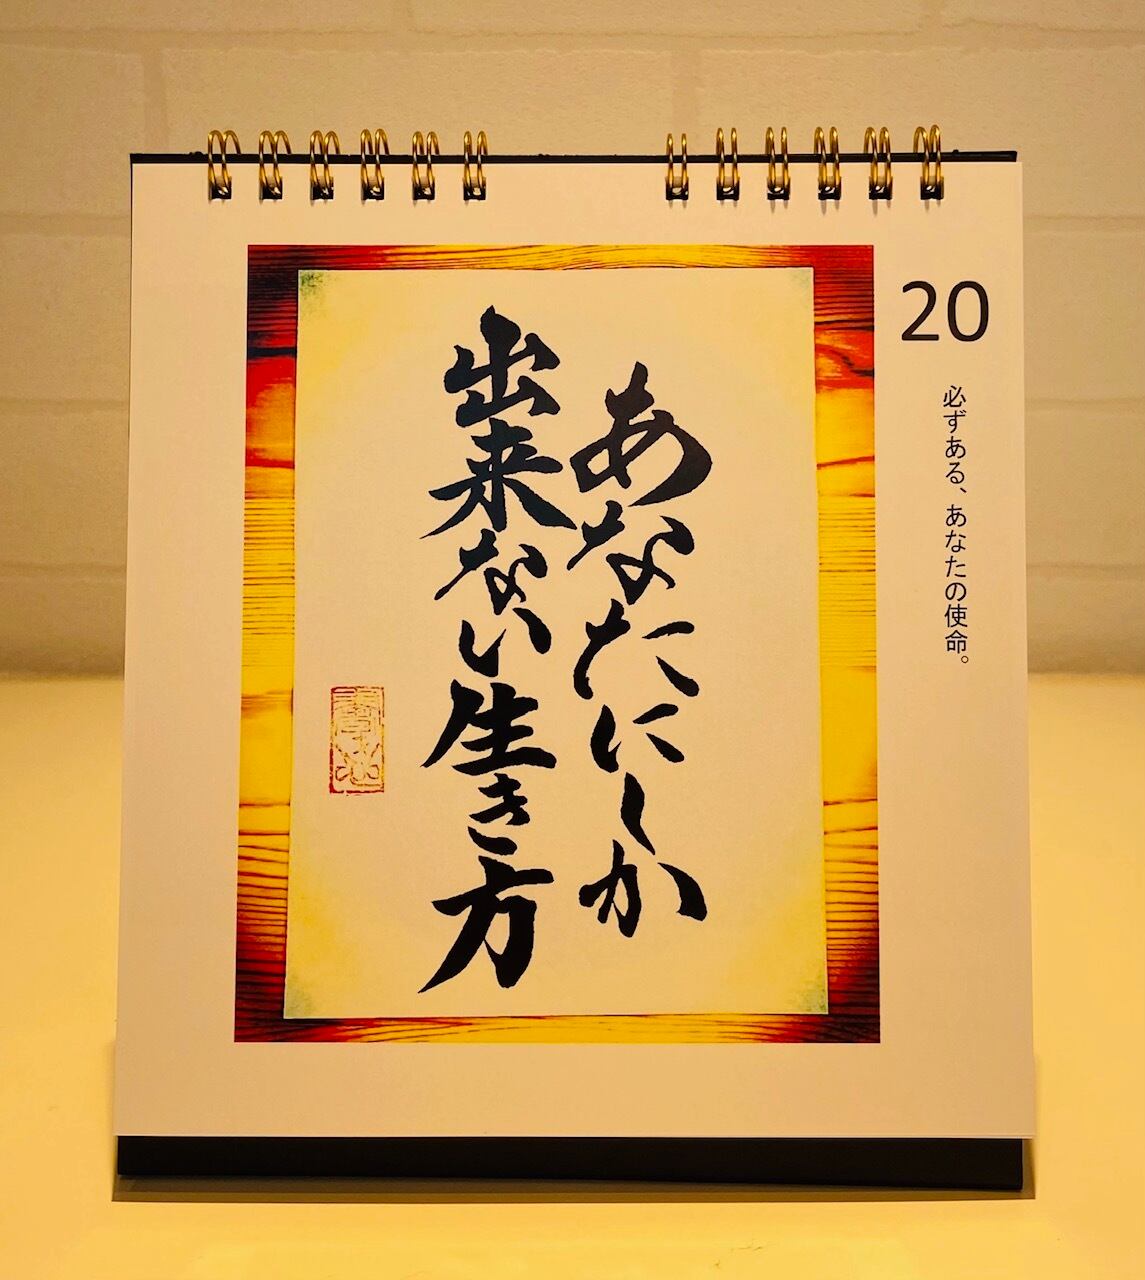 20
必ずある、あなたの使命。
あなたにしか
出来ない生き方